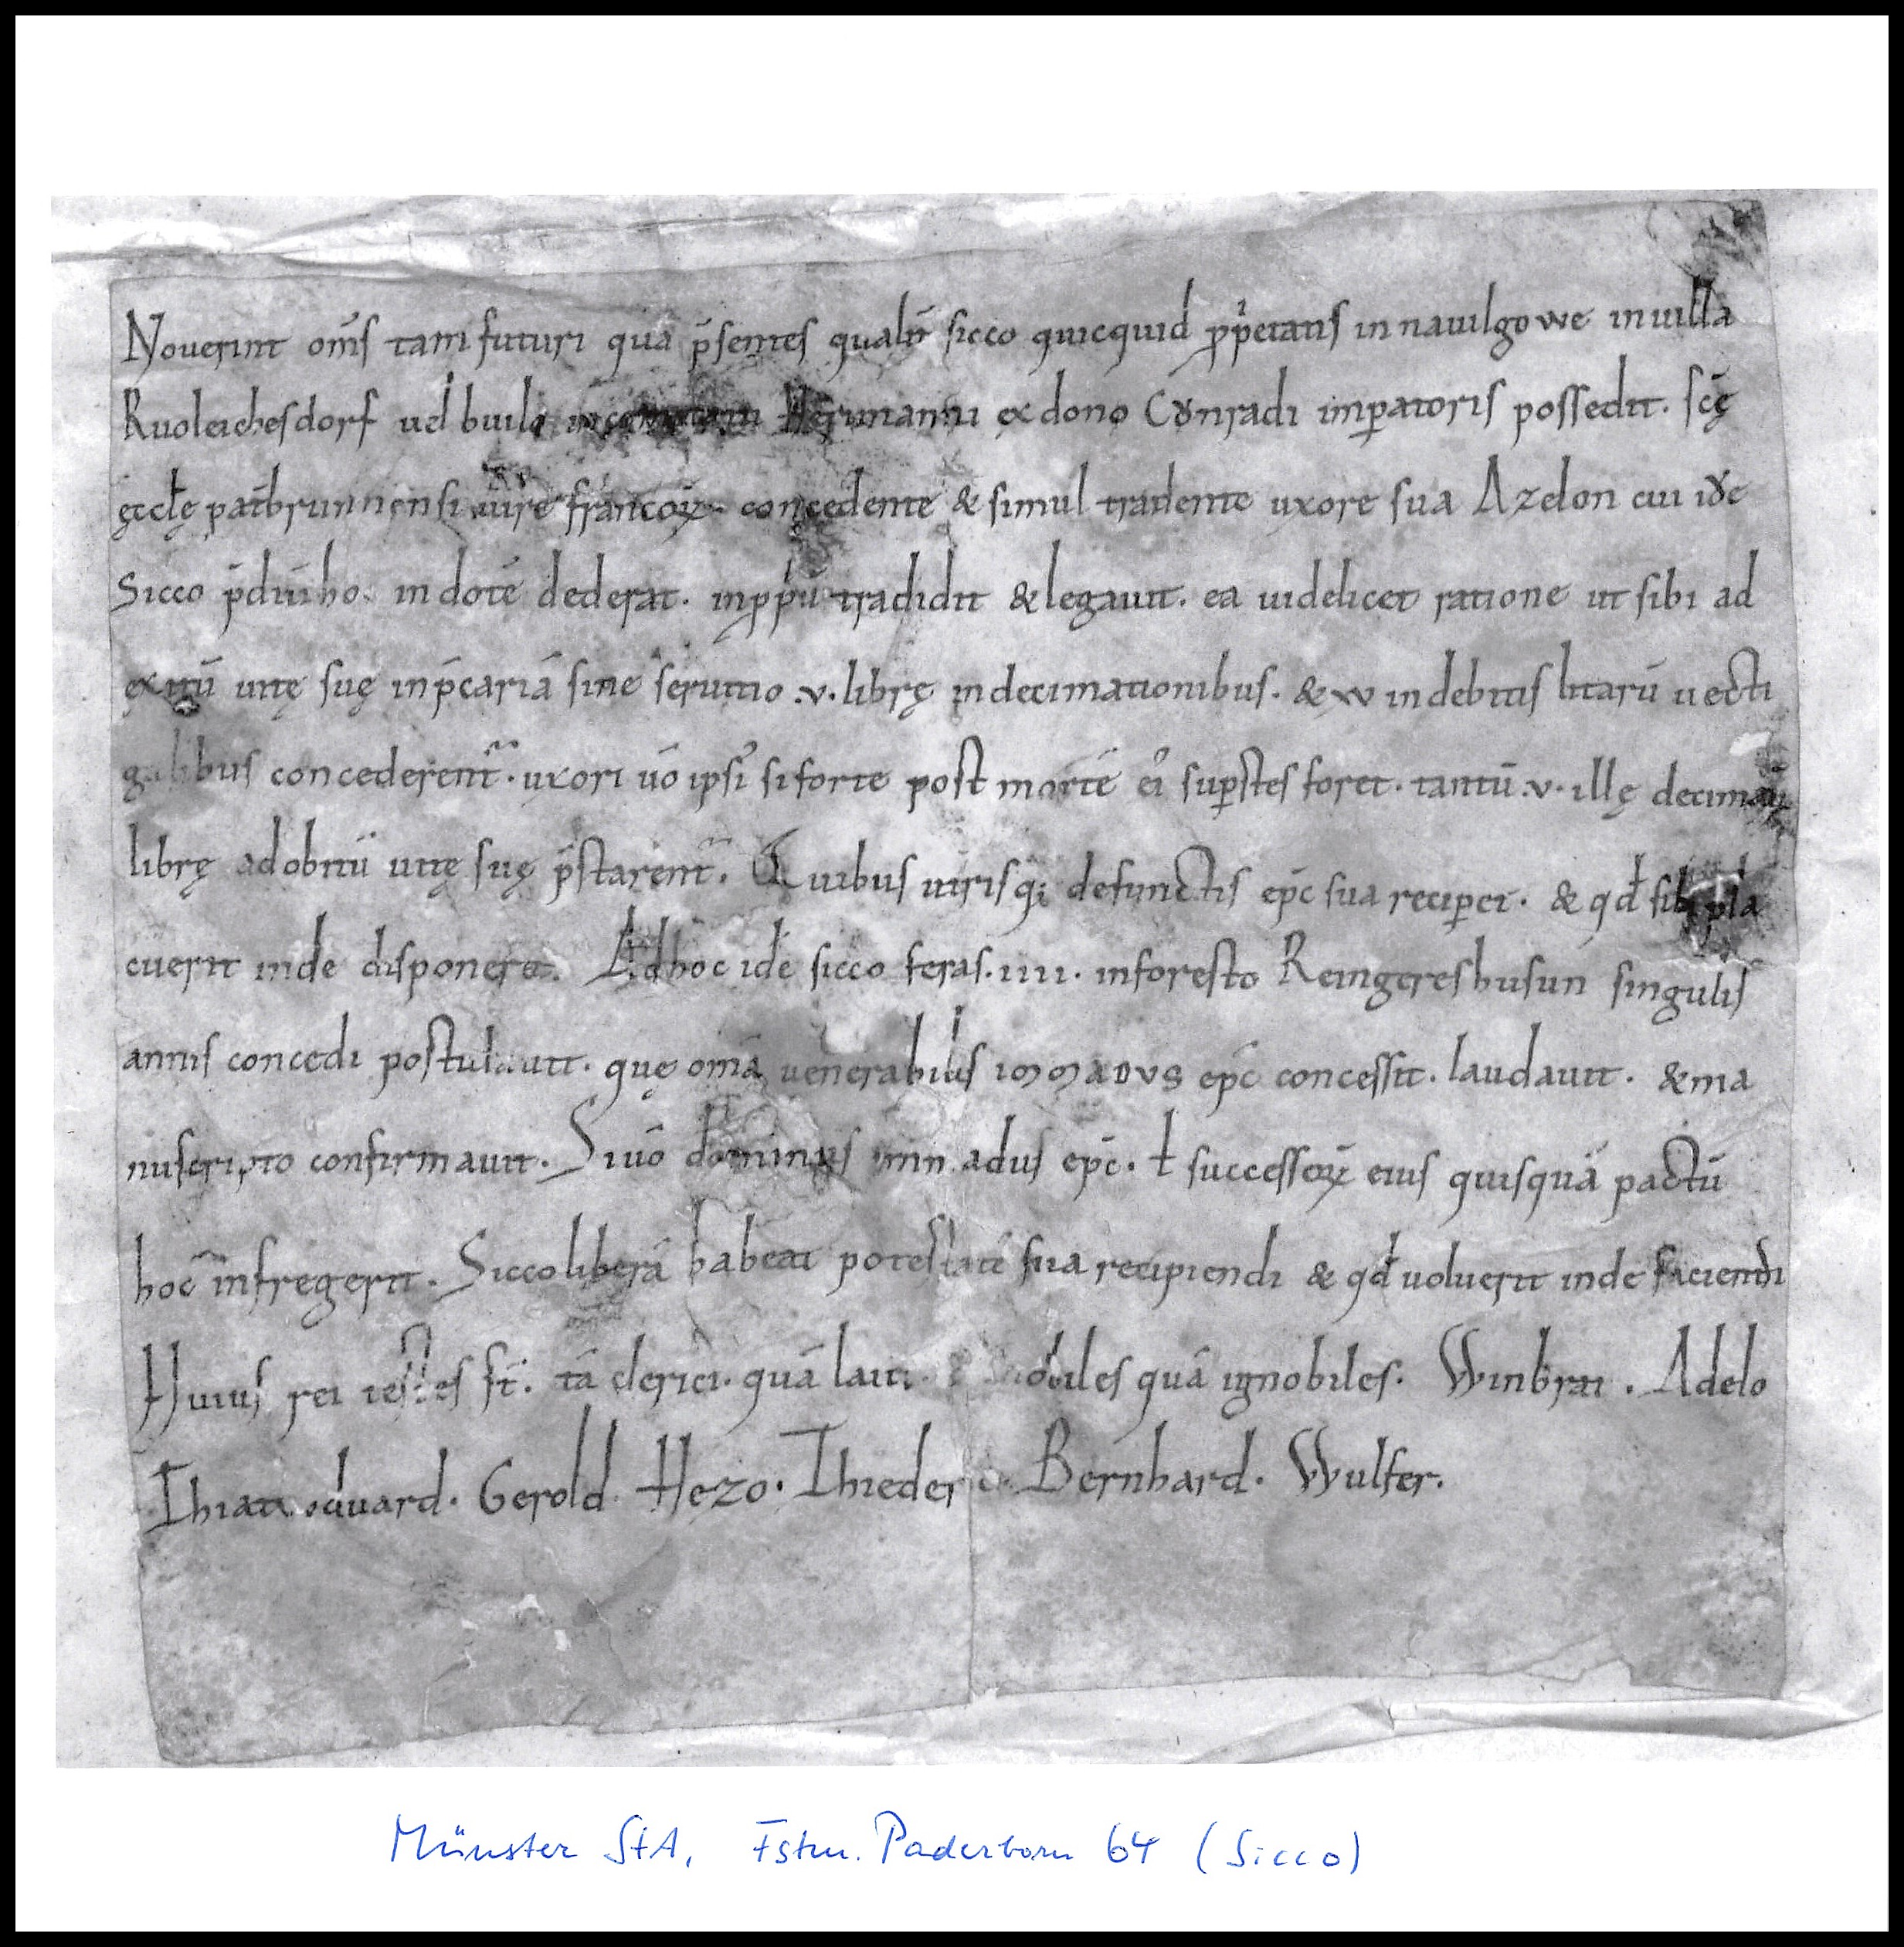 Nouerint om̄s tam futuri quā p̄sentes qualit̄ sicco quicquid p̱pⁱetatis in nauilgowe in uilla
Ruoleichesdorf uel buile in Herimanni ex dono Cǒnradi imp̱atoris possedit. sc̄ę
ęccl̄ę patbrunnensi iure francoꝝ concedente & simul tradente uxore sua Azelon cui idē
Sicco p̄diū hoc in dotē dederat. in p̱pⁱū tradidit & legauit. ea uidelicet ratione ut sibi ad
exitū uitę suę in p̄cariā sine seruitio .v. librę in decimationibus. & v in debitis litarū uecti
galibus concederent᷑. uxori ūo ipsi᷒ si forte post mortē ei᷒ sup̱stes foret. tantū .v. illę decimaꝝ
librę ad obitū uitę suę p̄starent᷑. Quibus utrisq; defunctis ep̄c sua recip̱et. & qd̄ sibi pla
cuerit inde disponere. Ad hoc idē sicco feras .iiii. in foresto Reingereshusun singulis
annis concedi postulauit. quę om̄ia uenerabilis IMMADVS ep̄c concessit. laudauit. & ma
nuscripto confirmauit. Si ūo dominus immadus ep̄c. ł successoꝝ eius quisquā pactū
hoc infregerit. Sicco liberā habeat potestatē sua recipiendi & qd̄ uoluerit inde faciendi
Huius rei testes st̄. tā clerici. quā laici. nobiles quā ignobiles. Winbrat. Adelo
Gerold. Hezo. Thiederic. Bernhard. Wulfer.
Münster StA, Fstm. Paderborn 64 (Sicco)